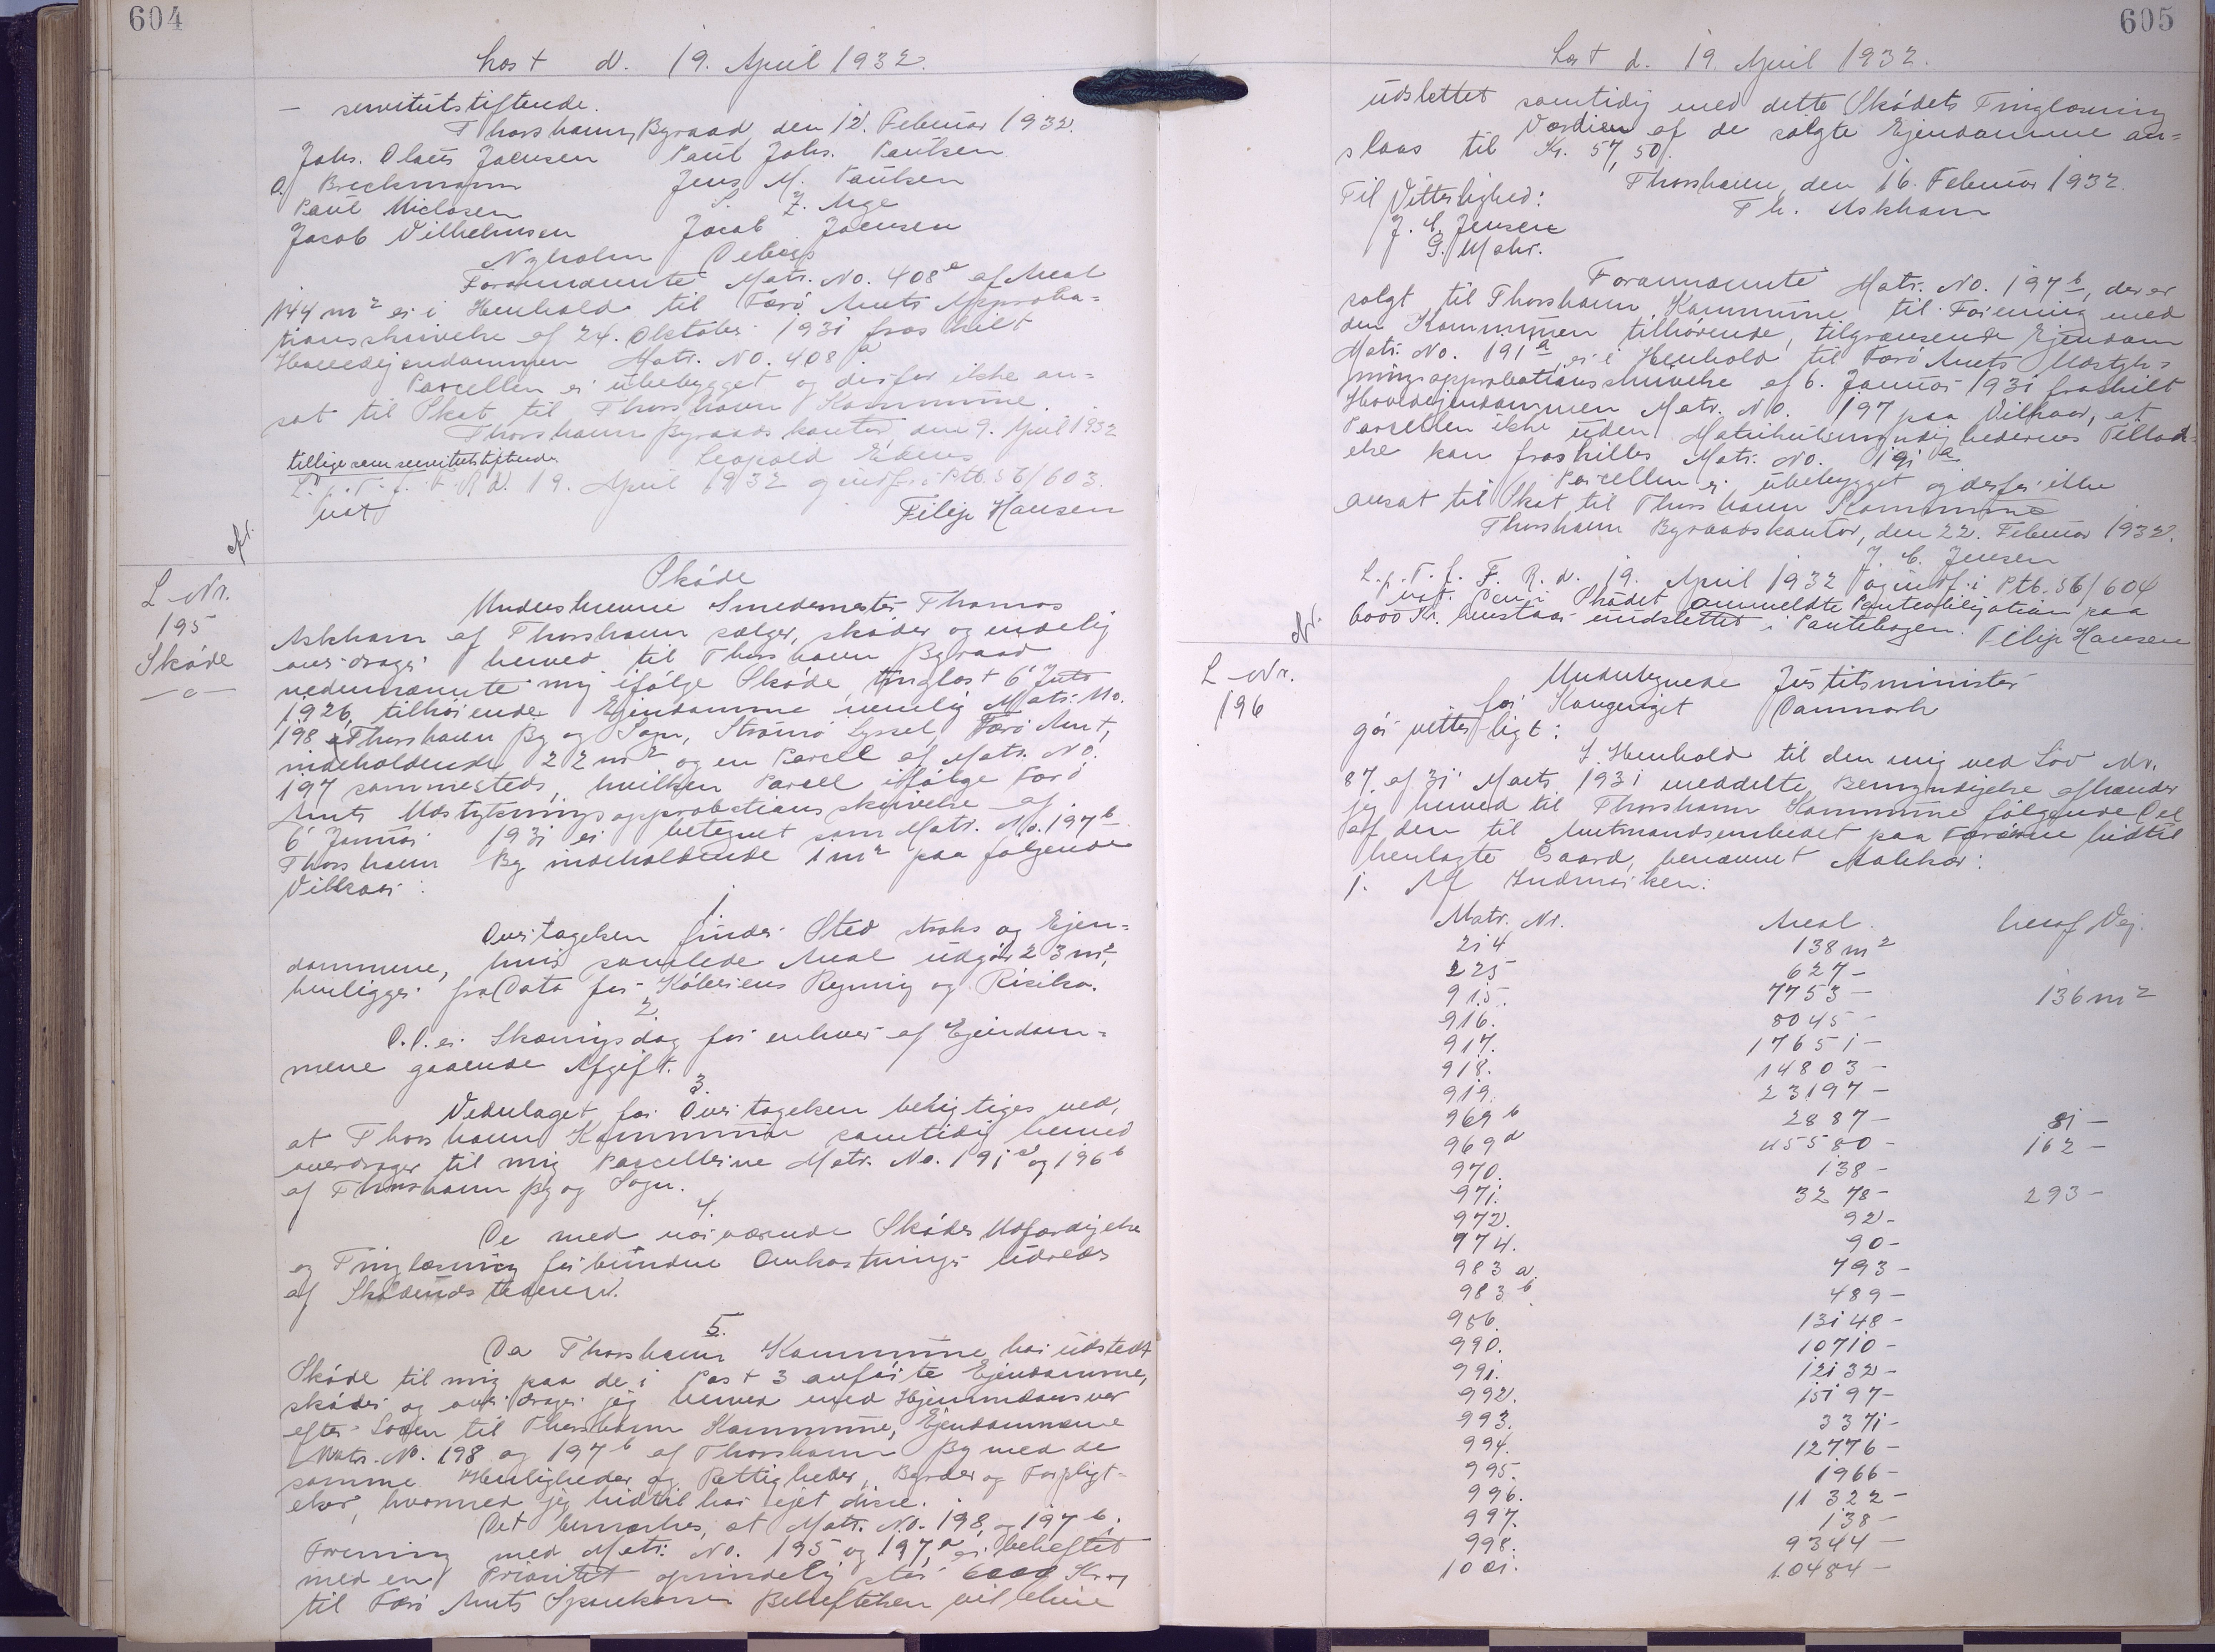 604
Læst d. 19. April 1932.
— servitutstiftende.
Thorshavn Byraad, den 12. Februar 1932.
Johs. Olaus Joensen Paul Johs. Paulsen
O. Breckmann Jens M. Paulsen
Paul Niclasen
Jacob Vilhelmsen Jacob Joensen
Nyholm Debess
Forannævnte Matr. No. 408e af Areal
144 m² er i Henhold til Færø Amts Approba=
tionsskrivelse af 24. Oktober 1931 fraskilt
Hovedejendommen Matr. No. 408a.
Parcellen er ubebygget og derfor ikke an=
sat til Skat til Thorshavn Kommune.
Thorshavn Byraadskontor, den 9. April 1932
tillige som servitutstiftende
L.p.T.f.F.R. d. 19. April 1932 og indf. i Ptb. S6/603.
Filip Hansen
L-Nr.
195
Skøde
Skøde
Underskrevne Smedemester Thomas
Askham af Thorshavn sælger, skøder og endelig
overdrager herved til Thorshavn Byraad
nedennævnte mig ifølge Skøde, tinglæst 6' Juli
1926, tilhørende Ejendomme nemlig Matr. No.
198 af Thorshavn By og Sogn, Strømø Syssel, Færø Amt,
indeholdende 22 m² og en Parcel af Matr. No.
197 sammesteds, hvilken Parcel ifølge Færø
Amts Udstykningsapprobationsskrivelse af
6' Januar 1931 er betegnet som Matr. No. 197b
Thorshavn By indeholdende 1 m² paa følgende
Vilkaar:
1.
Overtagelsen finder Sted straks og Ejen=
dommene, hvis samlede Areal udgør 23 m²,
henligger fra Dato for Køberens Regning og Risiko.
2.
D.D. er Skæringsdag for enhver af Ejendom=
mene gaaende Afgift.
3.
Vederlaget for Overtagelsen berigtiges ved,
at Thorshavn Kommune samtidig hermed
overdrager til mig Parcellerne Matr. No. 191d og 196b
af Thorshavn By og Sogn.
4.
De med nærværende Skødes Udfærdigelse
og Tinglæsning forbundne Omkostninger udredes
af Skødeudstederen.
5.
Da Thorshavn Kommune har udstedt
Skøde til mig paa de i Post 3 anførte Ejendomme,
skøder og overdrager jeg herved med Hjemmelsansvar
efter Loven til Thorshavn Kommune, Ejendommene
Matr. No. 198 og 197b af Thorshavn By med de
samme Herligheder og Rettigheder, Byrder og Forpligt-
elser, hvormed jeg hidtil har ejet disse.
Det bemærkes, at Matr. No. 198 og 197b i
Forening med Matr. No. 195 og 197a er behæftet
med en Prioritet oprindelig stor 6000 Kr.
til Færø Amts Sparekasse Behæftelsen vil blive
605
Læst d. 19. April 1932.
udslettet samtidig med dette Skødets Tinglæsning
Værdien af de solgte Ejendomme an=
slaas til Kr. 57,50.
Thorshavn, den 16. Februar 1932.
Til Vitterlighed: Th. Askham
J. C. Jensen
G. Mohr.
Forannævnte Matr. No. 197b, der er
solgt til Thorshavn Kommune til Forening med
den Kommunen tilhørende, tilgrænsende Ejendom
Matr. No. 191a, er i Henhold til Færø Amts Udstyk=
ningsapprobationsskrivelse af 6. Januar 1931 fraskilt
Hovedejendommen Matr. No. 197 paa Vilkaar, at
Parcellen ikke uden Matrikulsmyndighedernes Tillad=
else kan fraskilles Matr. No. 191a
Parcellen er ubebygget og derfor ikke
ansat til Skat til Thorshavn Kommune
Thorshavn Byraadskontor, den 22. Februar 1932.
J. C. Jensen
L.p.T.f.F.R. d. 19. April 1932 og indf. i Ptb. S6/604
Den i Skødet anmeldte Panteobligation paa
6000 Kr. henstaar uudslettet i Pantebogen. Filip Hansen
L-Nr.
196
Undertegnede Justitsminister
for Kongeriget Danmark
gør vitterligt:
I Henhold til den mig ved Lov Nr.
87 af 31' Marts 1931 meddelte Bemyndigelse afhænder
jeg herved til Thorshavn Kommune følgende Del
af den til Amtmandsembedet paa Færøerne hidtil
henlagte Gaard, benævnt Aakkar:
1. Af Indmarken:
Matr. Nr. Areal. heraf Vej.
214 138 m²
225 627 –
915. 7753 – 136 m²
916. 8045 –
917. 17651 –
918. 14803 –
919. 23197 –
969b 2887 – 81 –
969d 45580 – 162 –
970. 138 –
971. 3278 – 293 –
972. 92 –
974. 90 –
983a 793 –
983b 489 –
986. 13148 –
990. 10710 –
991. 12132 –
992. 15197 –
993. 3371 –
994. 12776 –
995. 1966 –
996. 11322 –
997. 138 –
998. 9344 –
1001. 10484 –